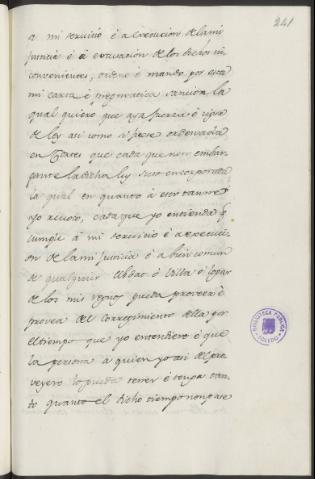 241
a mi servicio é a execucion de la mi
justicia é á evacuacion de los dichos in
convenientes, ordeno é mando por esta
mi carta é pregmatica sancion la
qual quiero que aya fuerza é vigor
de ley asi como si fuese ordenada
en Cortes que cada que non embar
gante la dicha ley suso encorporada
la qual en quanto á esto caso
yo revoco, cada que yo entienda q
cumple á mi servicio é a execuci
on de la mi justicia é a bien comun
de qualquier Cibdat é Villa é logar
de los mis regnos pueda proveer é
provea del corregimiento della por
el tiempo que yo entendiere é que
la persona á quien yo asi del pro
veyere lo pueda tener é tenga tan
to quanto el dicho tiempo non pase
BIBLIOTECA PUBLICA
TOLEDO